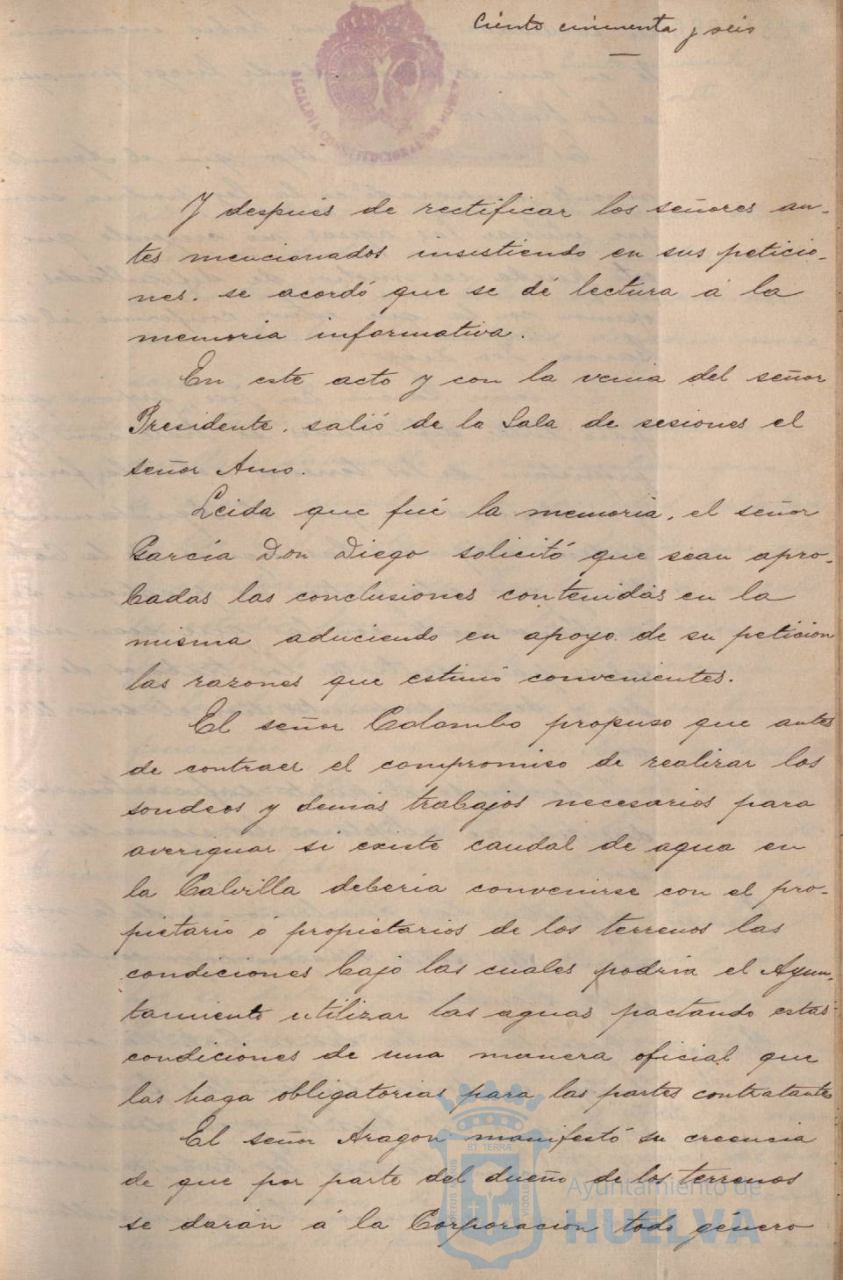 Ciento cincuenta y seis
ALCALDIA CONSTITUCIONAL DE HUELVA
Y después de rectificar los señores an-
tes mencionados insistiendo en sus peticio-
nes. se acordó que se dé lectura á la
memoria informativa.
En este acto y con la venia del señor
Presidente. salió de la Sala de sesiones el
señor Amo.
Leida que fué la memoria, el señor
García Don Diego solicitó que sean apro-
badas las conclusiones contenidas en la
misma aduciendo en apoyo de su peticion
las razones que estimó convenientes.
El señor Colombo propuso que antes
de contraer el compromiso de realizar los
sondeos y demás trabajos necesarios para
averiguar si existe caudal de agua en
la Calvilla deberia convenirse con el pro-
pietario ó propietarios de los terrenos las
condiciones bajo las cuales podria el Ayun-
tamiento utilizar las aguas pactando estas
condiciones de una manera oficial que
las haga obligatorias para las partes contratantes
El señor Aragon manifestó su creencia
de que por parte del dueño de los terrenos
se darán á la Corporacion todo género
Ayuntamiento de
HUELVA